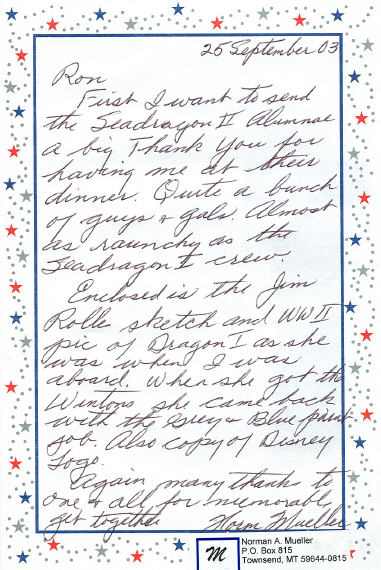 25 September 03
Ron
First I want to send
the Seadragon II Alumnae
a big Thank You for
having me at their
dinner. Quite a bunch
of guys & gals. Almost
as raunchy as the
Seadragon I crew.
Enclosed is the Jim
Rolle sketch and WW II
pic of Dragon I as she
was when I was
aboard. When she got the
Wintons she came back
with the Grey & Blue paint
job. Also copy of Disney
Logo.
Again many thanks to
one & all for memorable
get together
Norm Mueller
M
Norman A. Mueller
P.O. Box 815
Townsend, MT 59644-0815